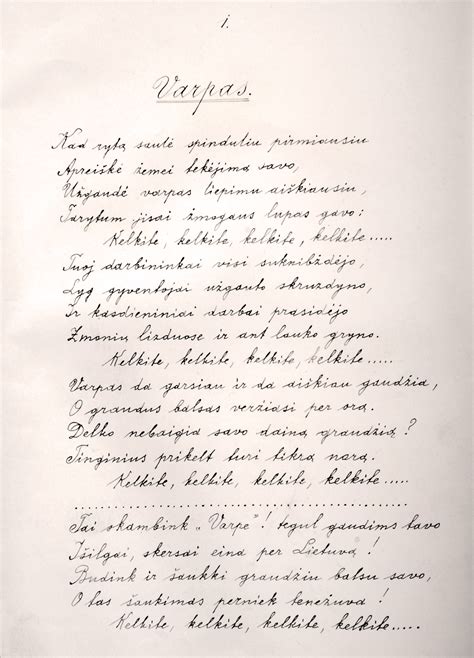 1.
Varpas.
Kad rytą saulė spinduliu pirmiausiu
Apreiškė žemei tekėjimą savo,
Užgaudė varpas liepimu aiškiausiu,
Tarytum jisai žmogaus lupas gavo:
Kelkite, kelkite, kelkite, kelkite.....
Tuoj darbininkai visi suknibždėjo,
Lyg gyventojai užgauto skruzdyno,
Ir kasdieniniai darbai prasidėjo
Žmonių lizduose ir ant lauko gryno.
Kelkite, kelkite, kelkite, kelkite.....
Varpas da garsiau ir da aiškiau gaudžia,
O graudus balsas veržiasi per orą.
Delko nebaigia savo dainą graudžią?
Tinginius prikelt turi tikrą norą.
Kelkite, kelkite, kelkite, kelkite.....
........................................
Tai skambink „Varpe"! tegul gaudims tavo
Išilgai, skersai eina per Lietuvą!
Budink ir šaukki graudžiu balsu savo,
O tas šaukimas perniek tenežuva!
Kelkite, kelkite, kelkite, kelkite.....